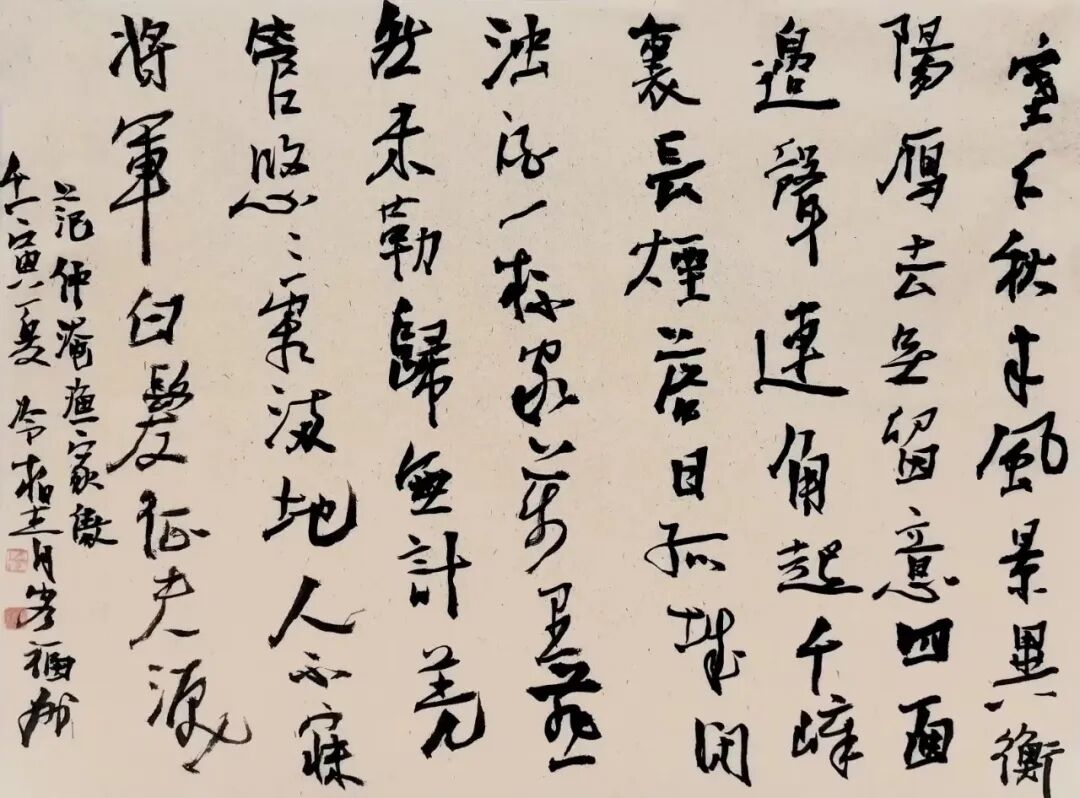 塞下秋来風景異衡
陽雁去无留意四面
邊聲連角起千嶂
裏長煙落日孤城閉
濁酒一杯家萬里燕
然未勒歸無計羌
管悠〻霜滿地人不寐
將軍白髮征夫淚
范仲淹漁家傲
壬寅夏 冷 福州